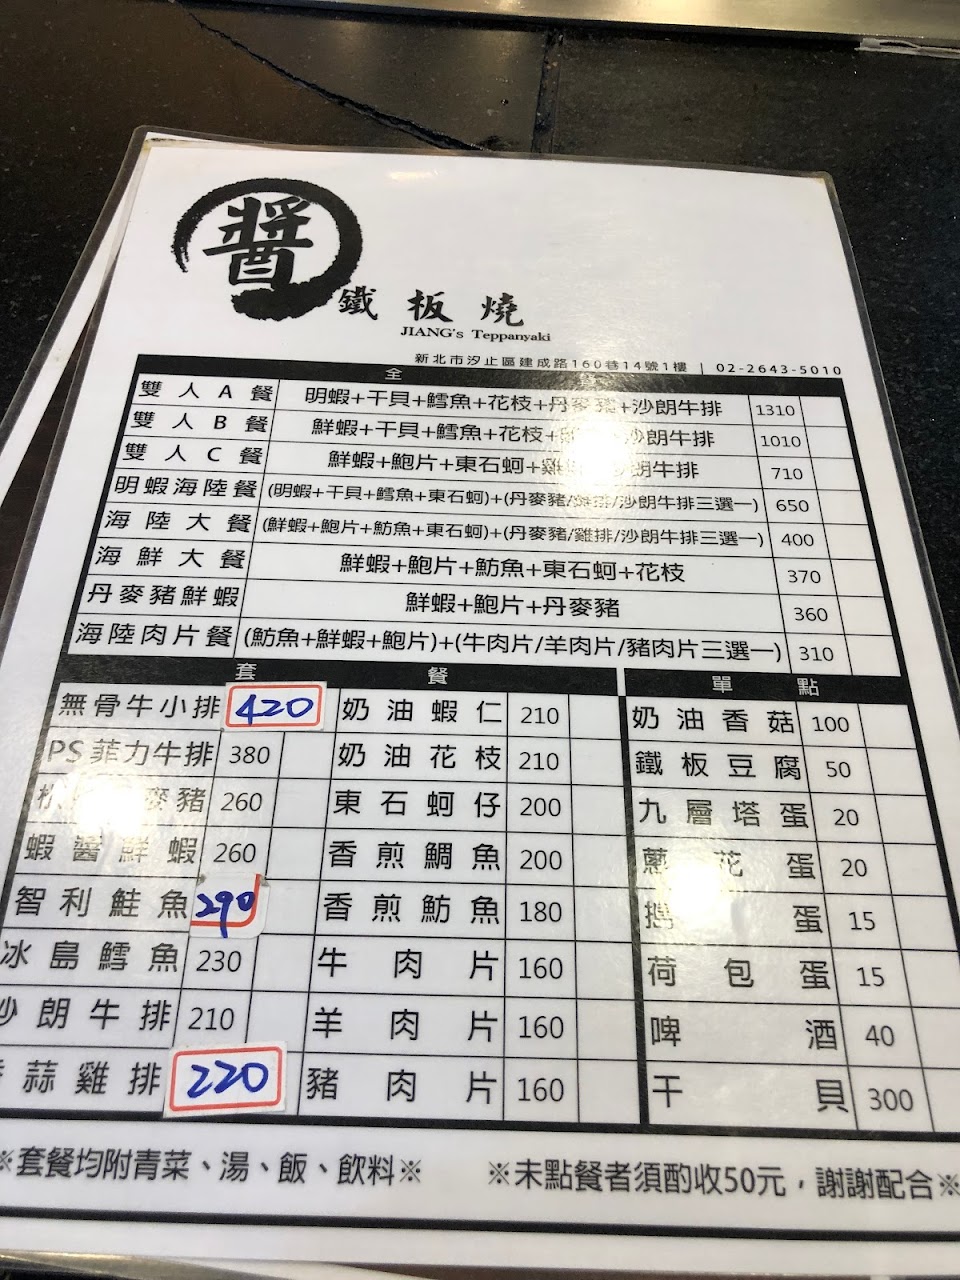 醬
鐵板燒
JIANG's Teppanyaki
新北市汐止區建成路160巷14號1樓 | 02-2643-5010
全
雙人A餐 明蝦+干貝+鱈魚+花枝+丹麥豬+沙朗牛排 1310
雙人B餐 鮮蝦+干貝+鱈魚+花枝+ 沙朗牛排 1010
雙人C餐 鮮蝦+鮑片+東石蚵+雞 朗牛排 710
明蝦海陸餐 (明蝦+干貝+鱈魚+東石蚵)+(丹麥豬/雞排/沙朗牛排三選一) 650
海陸大餐 (鮮蝦+鮑片+魴魚+東石蚵)+(丹麥豬/雞排/沙朗牛排三選一) 400
海鮮大餐 鮮蝦+鮑片+魴魚+東石蚵+花枝 370
丹麥豬鮮蝦 鮮蝦+鮑片+丹麥豬 360
海陸肉片餐 (魴魚+鮮蝦+鮑片)+(牛肉片/羊肉片/豬肉片三選一) 310
套餐 單點
無骨牛小排 420 奶油蝦仁 210 奶油香菇 100
PS菲力牛排 380 奶油花枝 210 鐵板豆腐 50
麥豬 260 東石蚵仔 200 九層塔蛋 20
蝦醬鮮蝦 260 香煎鯛魚 200 蔥花蛋 20
智利鮭魚 290 香煎魴魚 180 蛋 15
冰島鱈魚 230 牛肉片 160 荷包蛋 15
沙朗牛排 210 羊肉片 160 啤酒 40
蒜雞排 220 豬肉片 160 干貝 300
※套餐均附青菜、湯、飯、飲料※ ※未點餐者須酌收50元，謝謝配合※